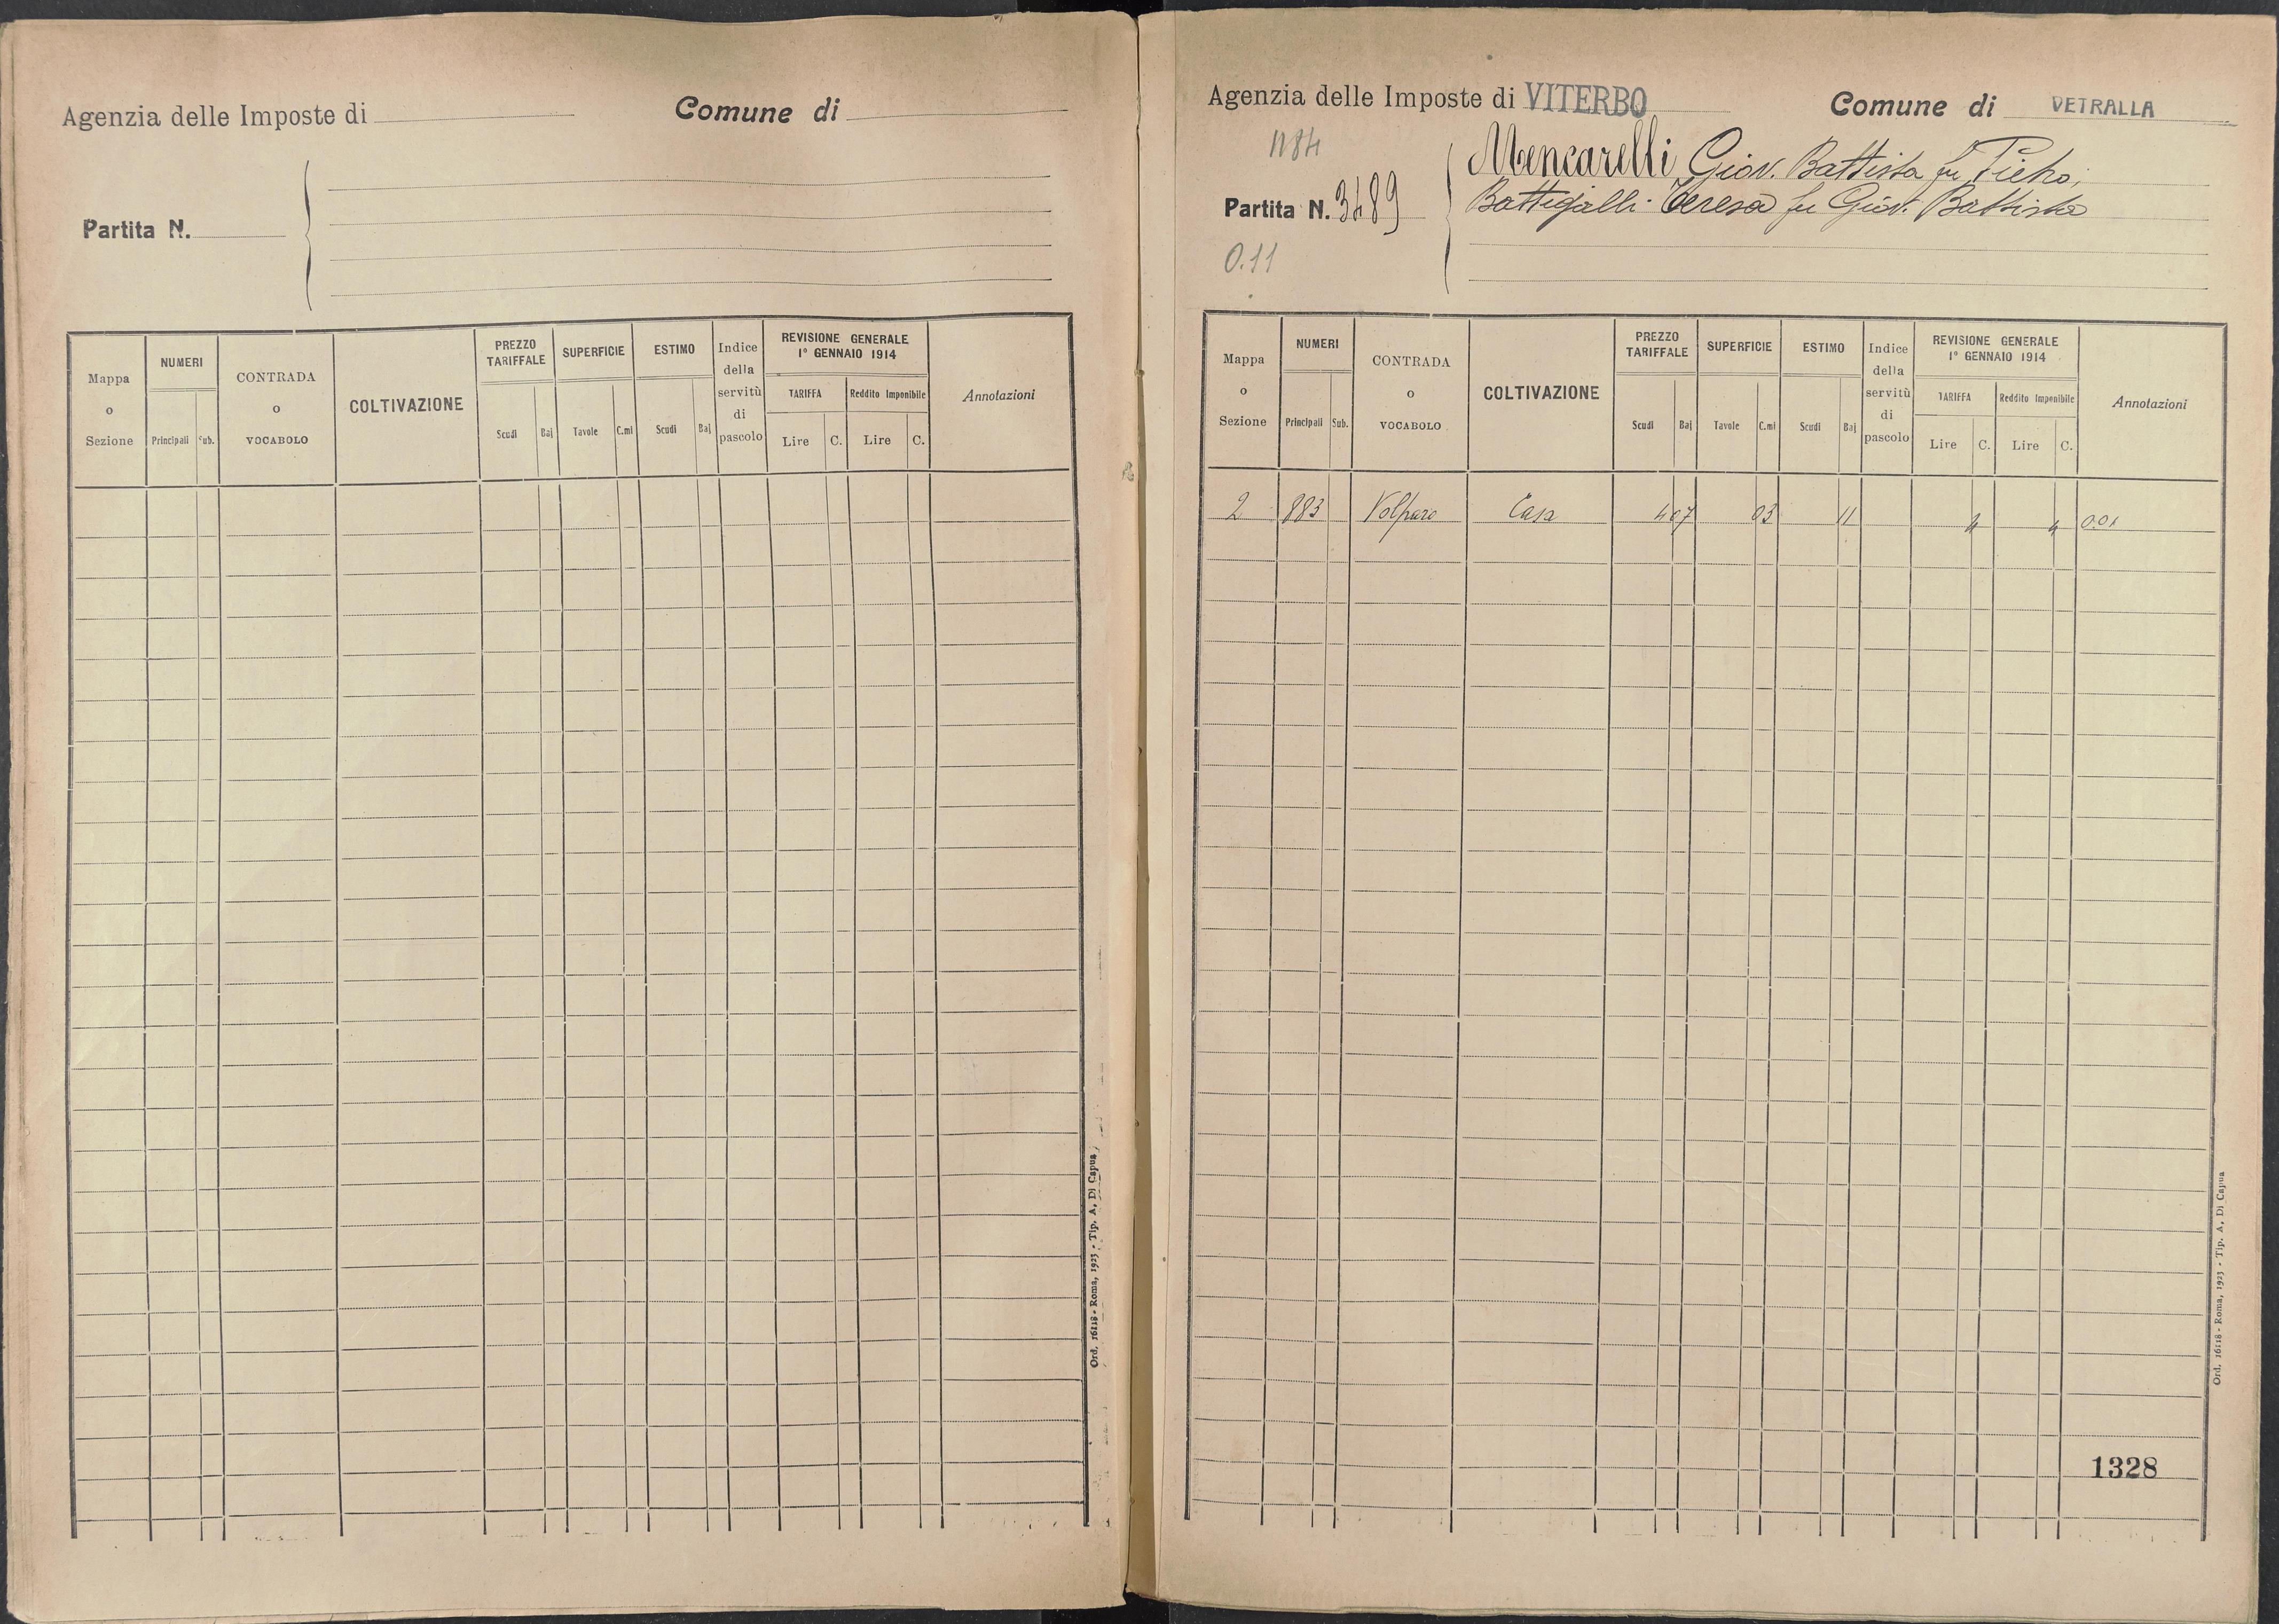 Agenzia delle Imposte di
Comune di
Partita N.
Mappa o Sezione
NUMERI
Principali Sub.
CONTRADA o VOCABOLO
COLTIVAZIONE
PREZZO TARIFFALE
Scudi Baj
SUPERFICIE
Tavole C.mi
ESTIMO
Scudi Baj
Indice della servitù di pascolo
REVISIONE GENERALE
1° GENNAIO 1914
TARIFFA
Lire C.
Reddito Imponibile
Lire C.
Annotazioni
Ord. 16118 - Roma, 1923 - Tip. A. Di Capua
Agenzia delle Imposte di VITERBO
Comune di VETRALLA
Partita N. 3489
Mencarelli Giov. Battista fu Pietro;
Battigalli Teresa fu Giov. Battista
0.11
Mappa o Sezione
NUMERI
Principali Sub.
CONTRADA o VOCABOLO
COLTIVAZIONE
PREZZO TARIFFALE
Scudi Baj
SUPERFICIE
Tavole C.mi
ESTIMO
Scudi Baj
Indice della servitù di pascolo
REVISIONE GENERALE
1° GENNAIO 1914
TARIFFA
Lire C.
Reddito Imponibile
Lire C.
Annotazioni
2 883 Volparo Casa 407 03 11 4 4 0.01
1328
Ord. 16118 - Roma, 1923 - Tip. A. Di Capua